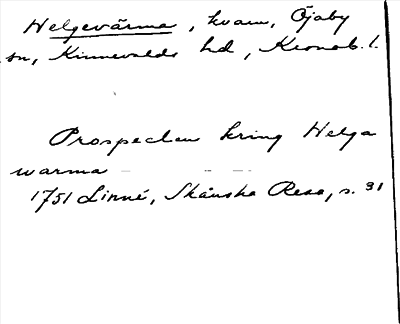 Helgevärma, kvarn, Öjaby
sn, Kinnevalds hd, Kronob. l.
Prospecten kring Helga
warma
1751 Linné, Skånska Resa, s. 31